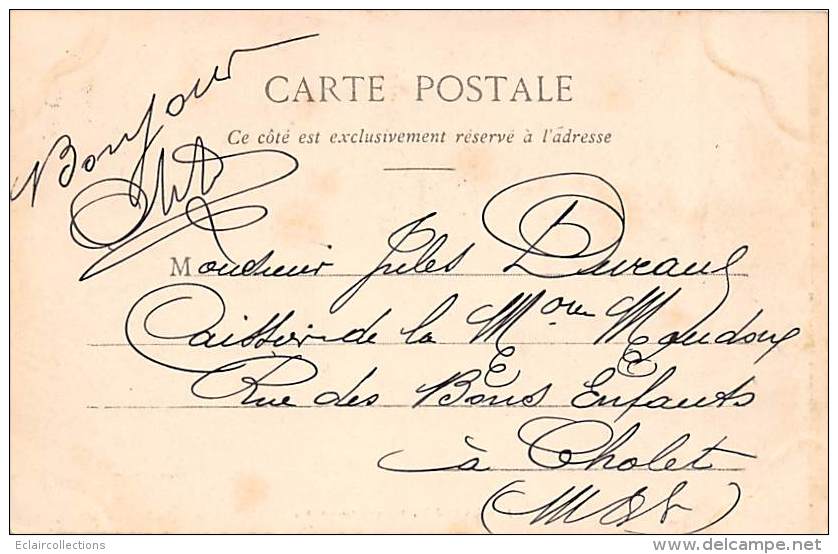 CARTE POSTALE
Ce côté est exclusivement réservé à l'adresse
Bonjour
Monsieur Jules Durand
Caissier de la Mon
Rue des Bons Enfants
à Cholet
(M & L)
Eclaircollections
www.delcampe.net